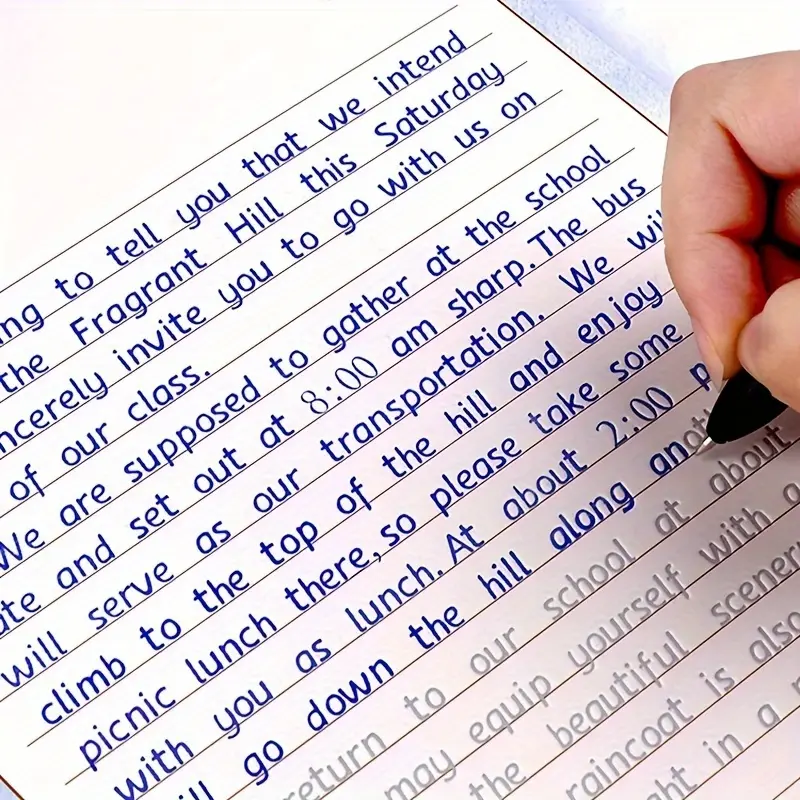 ing to tell you that we intend
the Fragrant Hill this Saturday
ncerely invite you to go with us on
of our class.
We are supposed to gather at the school
ate and set out at 8:00 am sharp.The bus
will serve as our transportation. We wil
climb to the top of the hill and enjoy
picnic lunch there,so please take some
with you as lunch.At about 2:00 p
ill go down the hill along anoth
return to our school at about
may equip yourself with a
the beautiful scener
raincoat is also
ght in a